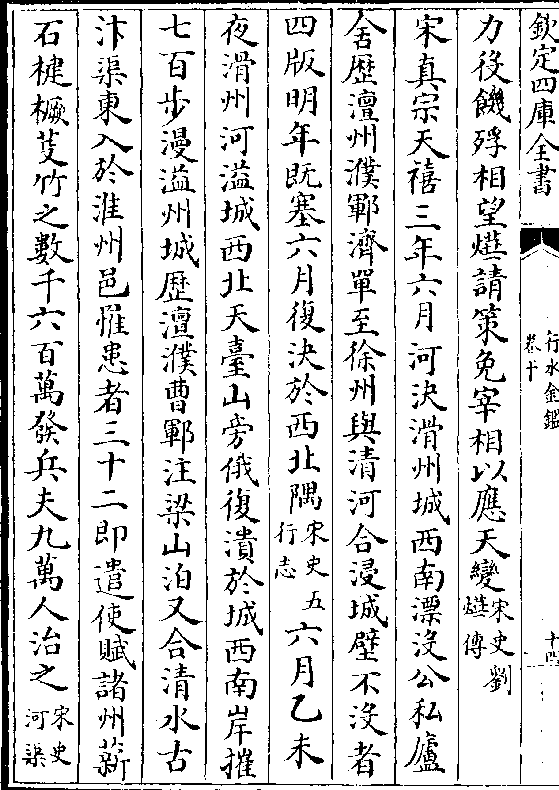 欽定四庫全書
行水金鑑
卷十
十四
力役饑殍相望㷼請策免宰相以應天變宋史劉㷼傳
宋真宗天禧三年六月河決滑州城西南漂沒公私廬
舍歷澶州濮鄆濟單至徐州與清河合浸城壁不沒者
四版明年既塞六月復決於西北隅宋史五行志六月乙未
夜滑州河溢城西北天臺山旁俄復潰於城西南岸摧
七百步漫溢州城歷澶濮曹鄆注梁山泊又合清水古
汴渠東入於淮州邑罹患者三十二即遣使賦諸州薪
石楗橛芟竹之數千六百萬發兵夫九萬人治之宋史河渠